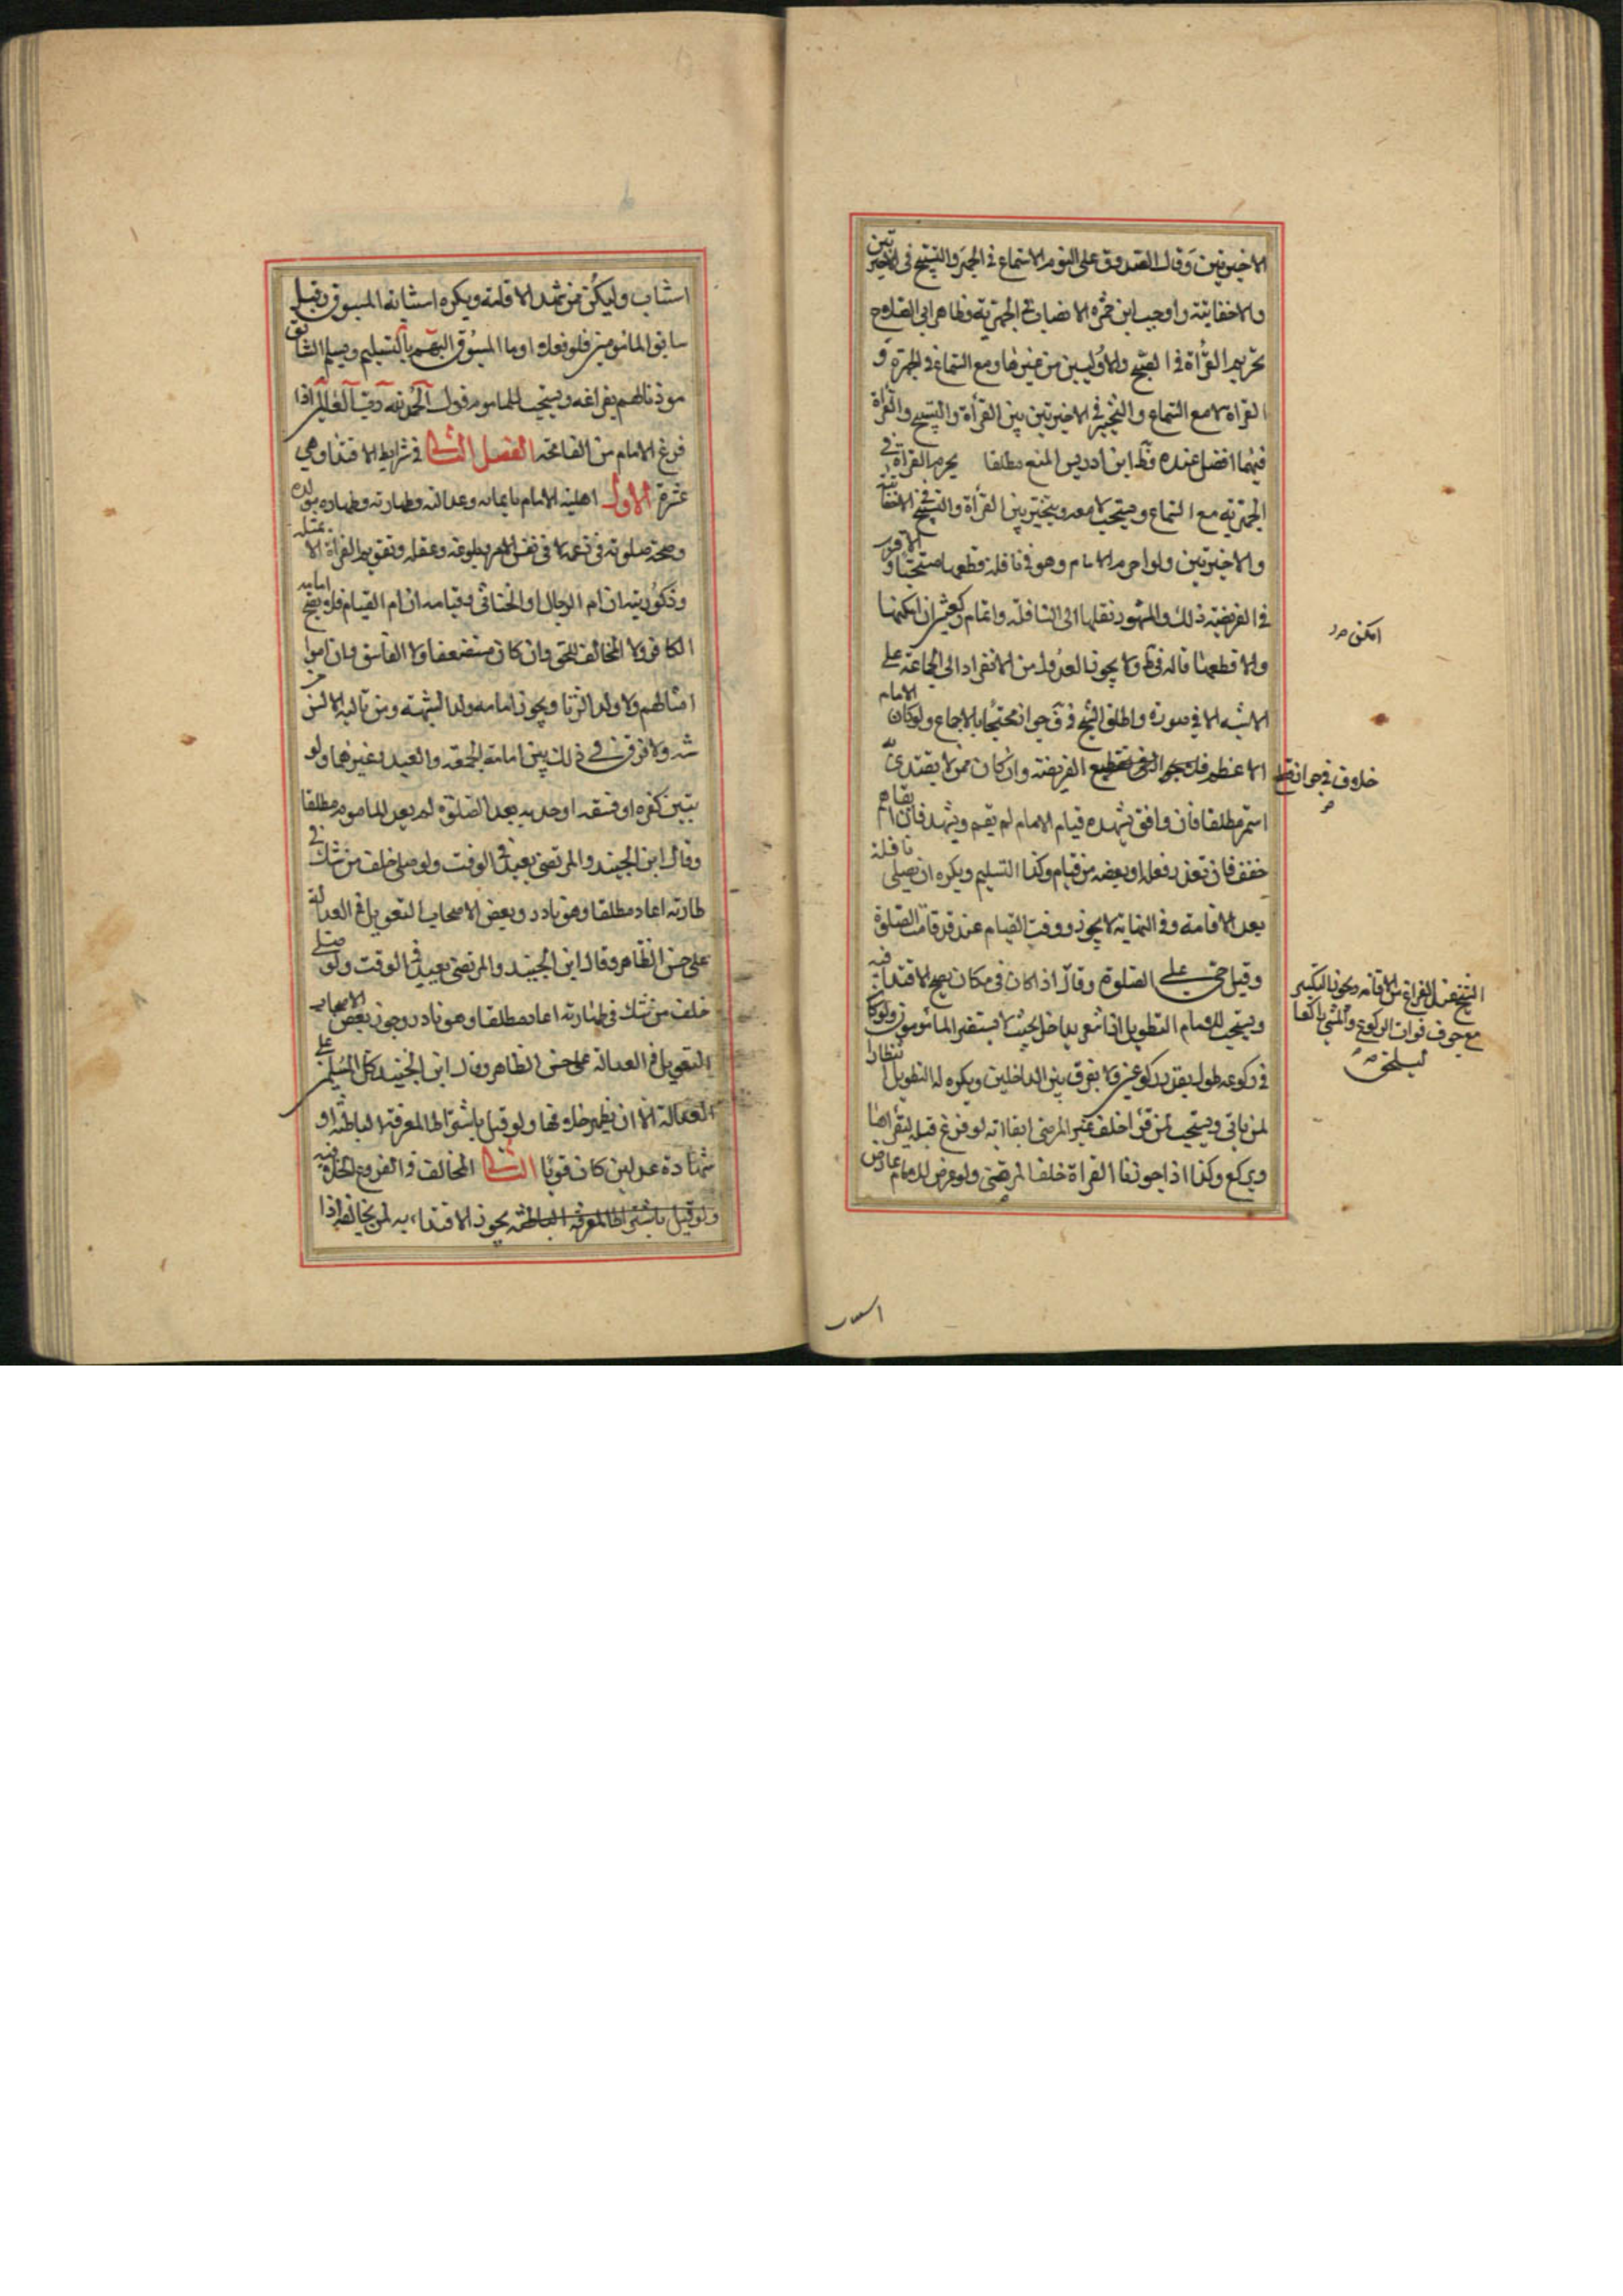 الاخيرتين وقال الصدوق على القوم الاستماع في الجهر والتسبيح في الاخيرتين
والاخفاتية واوجب ابن حمزة الانصات في الجهرية وظاهر ابي الصلاح
تحريم القرأة في الصبح والاوليين من غيرها ومع السماع في الجهرة و
القراة لا مع السماع والتخيير في الاخيرتين بين القرأة والتسبيح والقراة
فيهما افضل عنده وظ ابن ادريس المنع مطلقا يحرم القراة في
الجهرية مع السماع ويستحب لا معه ويتخير بين القرأة والتسبيح في الاخفاتية
والاخيرتين ولو احرم الامام وهو في نافلة قطعها مستحبا والاقرب
في الفريضة ذلك والمشهور نقلها الى النافلة واتمام ركعتين ان امكنها
والا قطعها قاله في ط ولا يجوز العدول من الانفراد الى الجماعة على
الاشبه الا في صورة واطلق الشيخ في ف جوازه محتجا بالاجماع ولو كان الامام
الاعظم فله قطع الفريضة وان كان ممن لا يقتدى به
استمر مطلقا فان وافق تشهده قيام الامام لم يقم ويتشهد فان قام
خفف فان تعذر فعله او بعضه من قيام وكذا التسليم ويكره ان يصلى نافلة
بعد الاقامة وفي النهاية لا يجوز ووقت القيام عند قد قامت الصلوة
وقيل حي على الصلوة وقال اذا كان في مكان يصح الاقتداء فيه
ويستحب للامام التطويل اذا شعر بداخل بحيث لا يستضر المامومون ولو كان
في ركوعه طول بقدر ركوعين ولا يفرق بين الداخلين ويكره له التطويل انتظارا
لمن ياتي ويستحب لمن قرأ خلف غير المرضي ابقاء اية لو فرغ قبله ليقرأها
ويركع وكذا اذا جوزنا القراة خلف المرضي ولو عرض للامام عارض
امكن
خلاف في جواز قطع
الشيخ عند الفراغ من الاقامة ويجوز التكبير
مع خوف فوات الركوع والمشي راكعا
ليلتحق
استناب
استناب وليكن ممن شهد الاقامة ويكره استنابة المسبوق وقيل
سابق المامومين فلو فعله اوما المسبوق اليهم بالتسليم ويسلم السابق
موذنا لهم بفراغه ويستحب للماموم قول الحمد لله رب العالمين اذا
فرغ الامام من الفاتحة الفصل الثاني في شرايط الاقتداء وهي
عشرة الاول اهلية الامام بايمانه وعدالته وطهارته وطهارة مولده
وصحة صلوته في زعمه لا في نفس الامر وبلوغه وعقله وتقويم القراة الا بمثله
وذكوريته ان ام الرجال او الخناثى وقيامه ان ام القيام فلا يصح امامة
الكافر ولا المخالف للحق وان كان مستضعفا ولا الفاسق وان اموا
امثالهم ولا ولد الزنا ويجوز امامه ولد الشبهة ومن تناله الالسن
ولا فرق في ذلك بين امامة الجمعة والعيد وغيرهما ولو
تبين كفره او فسقه او حدثه بعد الصلوة لم يعد الماموم مطلقا
وقال ابن الجنيد والمرتضى يعيد في الوقت ولو صلى خلف من شك في
طهارته اعاد مطلقا وهو نادر وبعض الاصحاب التعويل في العدالة
على حسن الظاهر وقال ابن الجنيد والمرتضى يعيد في الوقت ولو صلى
خلف من شك في طهارته اعاد مطلقا وهو نادر وجوز بعض الاصحاب
التعويل في العدالة على حسن الظاهر وقال ابن الجنيد كل المسلمين على
العدالة الا ان يظهر خلافها ولو قيل باشتراط المعرفة الباطنة او
شهادة عدلين كان قويا الثاني المخالف في الفروع الخلافية
ولو قيل باشتراط المعرفة الباطنة يجوز الاقتداء به لمن يخالفه اذا